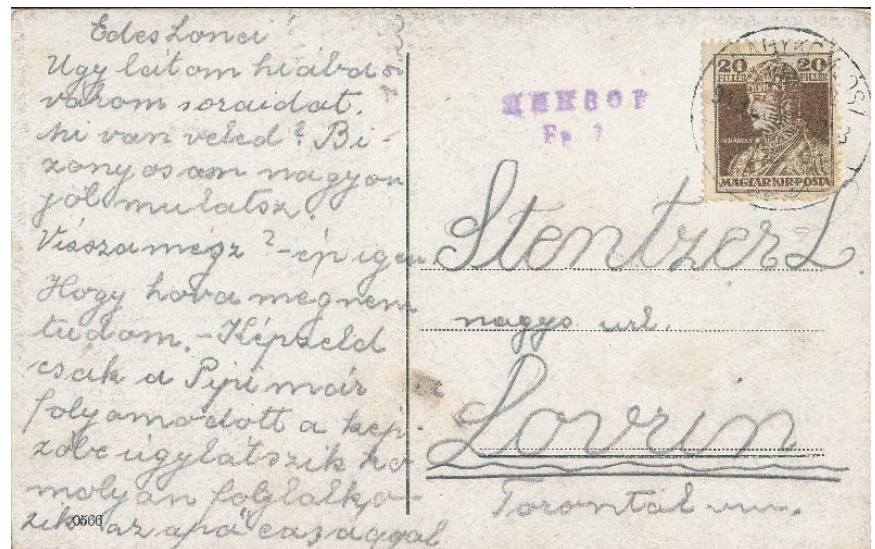 Édes Lonci
Úgy látom hiába
várom soraidat.
Mi van veled? Bi-
zonyosam nagyon
jól mulatsz.
Vissza mégz? -ép igen
Hogy hova megnem
tudom. - Képzeld
csak a Pipi már
folyamodott a kép-
zőbe úgylátszik ko
molyan foglalko-
zik az apá
0566
20 20
FILLÉR FILLÉR
MAGYAR KIR. POSTA
Stentzer L
nagys url.
Lovrin
Torontál vm.